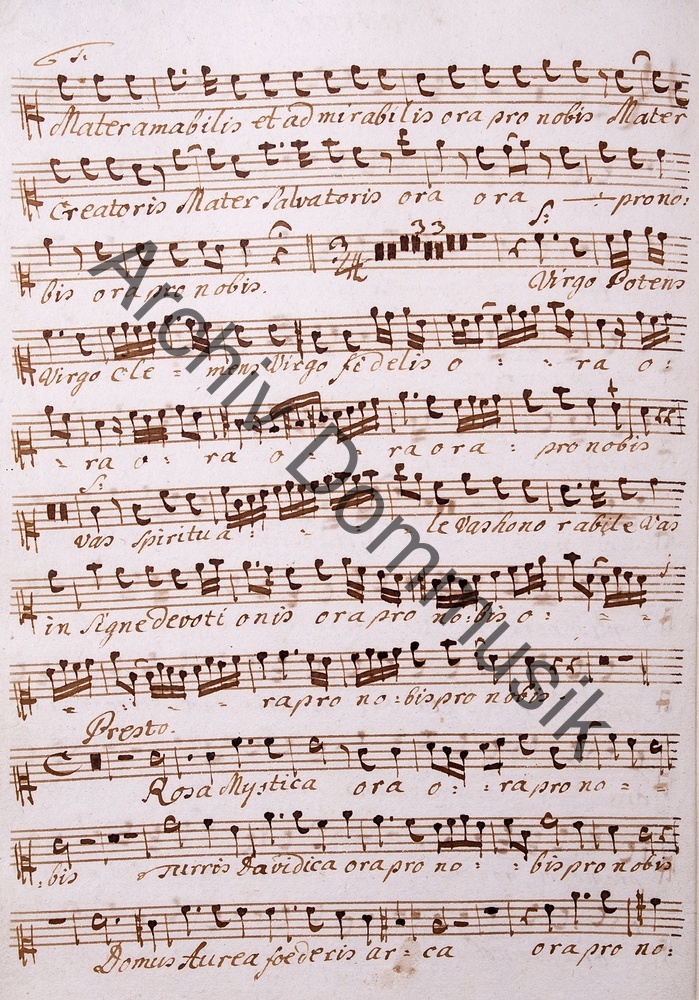 S:
Mater amabilis et admirabilis ora pro nobis Mater
Creatoris Mater Salvatoris ora ora — prono:
S:
3 3
3/4
bis ora pro nobis. Virgo Potens
Virgo Cle - mens Virgo fidelis o - : ra o :
- ra o : ra o : : ra ora : pro nobis
S:
vas spiritua : le Vas hono rabile Vas
in signe devoti onis ora pro no: bis o : - -
- : - : rapro no : bis pro nobis.
Presto.
C
Rosa Mystica ora o : : rapro no = =
: bis Turris Davidica ora pro no : : bis pro nobis
Domus Aurea foederis ar : ca ora pro no :
Archiv Dommusik